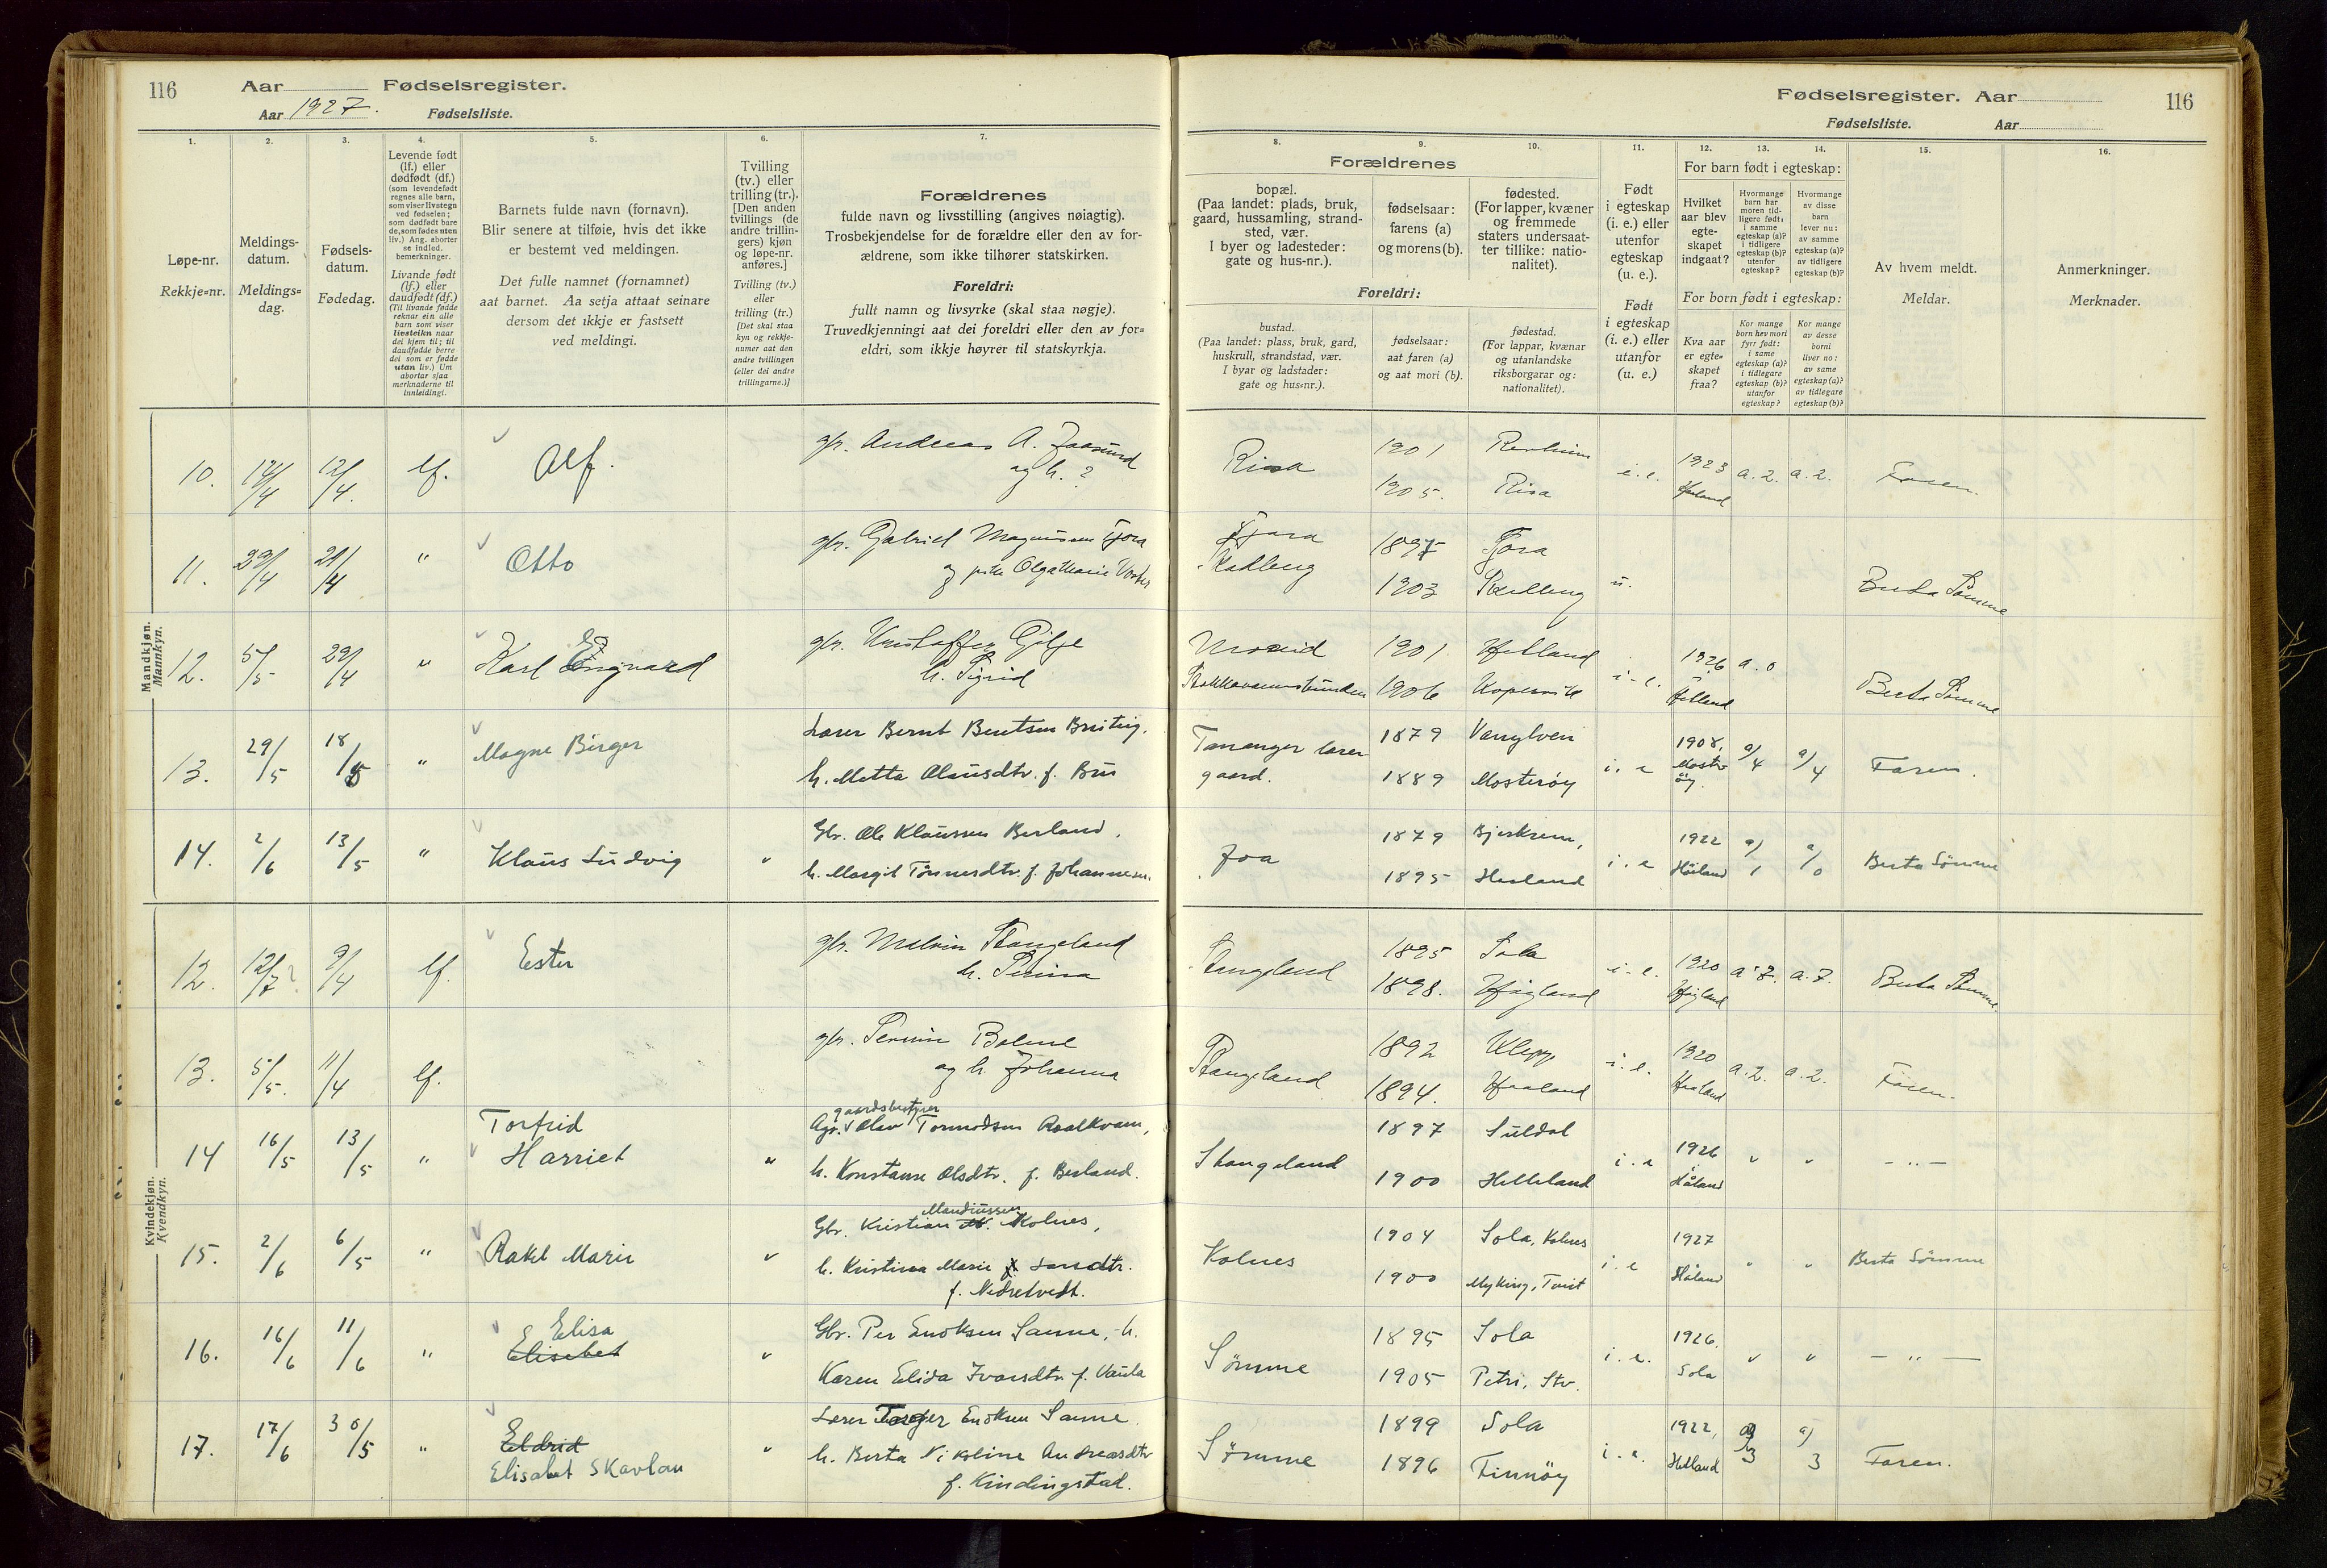 116
Aar Fødselsregister.
Aar 1927. Fødselsliste.
Fødselsregister. Aar
116
Fødselsliste. Aar
1.
2.
3.
4.
5.
6.
7.
8.
9.
10.
11.
12.
13.
14.
15.
16.
Løpe-nr.
Rekkje=nr.
Meldings-
datum.
Meldings=
dag.
Fødsels-
datum.
Fødedag.
Levende født
(lf.) eller
dødfødt (df.)
(som levendefødt
regnes alle barn,
som viser livstegn
ved fødselen;
som dødfødt bare
de, som fødes uten
liv.) Ang. aborter
se indled.
bemerkninger.
Livande født
(lf.) eller
daudfødt (df.)
(Til livande fødde
reknar ein alle
barn som viser
livsteikn naar
dei kjem til; til
daudfødde berre
dei som er fødde
utan liv.) Um
abortar sjaa
merknaderne til
innleidingi.
Barnets fulde navn (fornavn).
Blir senere at tilføie, hvis det ikke
er bestemt ved meldingen.
Det fulle namnet (fornamnet)
aat barnet. Aa setja attaat seinare
dersom det ikkje er fastsett
ved meldingi.
Tvilling
(tv.) eller
trilling (tr.).
[Den anden
tvillings (de
andre trillin-
gers) kjøn
og løpe-nr.
anføres.]
Tvilling (tv.)
eller
trilling (tr.)
[Det skal staa
kyn og rekkje-
numer aat den
andre tvillingen
(eller dei andre
trillingarne.)]
Forældrenes
fulde navn og livsstilling (angives nøiagtig).
Trosbekjendelse for de forældre eller den av for-
ældrene, som ikke tilhører statskirken.
Foreldri:
fullt namn og livsyrke (skal staa nøgje).
Truvedkjenningi aat dei foreldri eller den av for=
eldri, som ikkje høyrer til statskyrkja.
Forældrenes
bopæl.
(Paa landet: plads, bruk,
gaard, hussamling, strand-
sted, vær.
I byer og ladesteder:
gate og hus-nr.).
fødselsaar:
farens (a)
og morens (b).
fødested.
(For lapper, kvæner
og fremmede
staters undersaat-
ter tillike: natio-
nalitet).
Foreldri:
bustad.
(Paa landet: plass, bruk, gard,
huskrull, strandstad, vær.
I byar og ladstader:
gate og hus=nr.).
fødselsaar:
aat faren (a)
og aat mori (b).
fødestad.
(For lappar, kvænar
og utanlandske
riksborgarar og:
nationalitet).
Født
i egteskap
(i. e.) eller
utenfor
egteskap
(u. e.).
Født
i egteskap
(i. e.) eller
utanfor
(u. e.)
For barn født i egteskap:
Hvilket
aar blev
egte-
skapet
indgaat?
Hvormange
barn har
moren tid-
ligere født:
i samme
egteskap (a)?
i tidligere
egteskap (b)?
utenfor
egteskap?
Hvormange
av disse
barn
lever nu:
av samme
egteskap (a)?
av tidligere
egteskap (b)?
For born født i egteskap:
Kva aar
er egte=
skapet
fraa?
Kor mange
born hev mori
fyrr født:
i same
egteskap (a)?
i tidlegare
egteskap (b)?
utanfor
egteskap?
Kor mange
av desse
borni
liver no:
av same
egteskap (a)?
av tidlegare
egteskap (b)?
Av hvem meldt.
Meldar.
Anmerkninger.
Merknader.
Mandkjøn.
Mannkyn.
10. 12/4 12/4. lf. Alf. gbr. Andreas A. Joasund
og h. ?
Risa 1901 Revheim
1905. Risa
i. e. 1923 Høiland a. 2. a. 2. Faren.
11. 29/4 21/4 " Otto gbr. Gabriel Magnussen Tjora
og pike Olga Marie
Tjora 1897 Tjora
Rædleng 1903 Rædleng
u. Berta Sømme
12. 5/5 29/4 " Karl Ingvard gbr. Kristoffer Gilje
h. Sigrid
1901 Helland
1906 Kopervik
i. e. 1926 Helland a. 0 Berta Sømme
13. 29/5 18/5 " Magne Birger Lærer Bernt Bentsen Breiteig.
h. Metta Olausdtr. f. Bru
Tananger lærer
gaard.
1879 Vanylven
1889 Mosterøy
i. e 1908, Moster
öy. a/4 a/4 Faren.
14. 2/6 13/5 " Klaus Ludvig " Gbr. Ole Klaussen Berland.
h. Margit Tönnesdtr. f. Johannesen.
Joa 1879 Bjerkreim,
1895 Hesland
i. e 1922 Höiland a/1 a/0 Berta Sömme
Kvindekjøn.
Kvendkyn.
12. 12/7? 9/4 lf. Ester gbr. Melvin Stangeland
h. Serina
Stangeland 1895 Sola
1898. Høgland
i. e. 1920 Høgland a. 7. a. 7. Berta Sømme
13. 5/5. 11/4 lf. gbr. Bolme
og h. Johanna
Stangeland 1892 Klepp
1894. Haaland
i. e. 1920 Haaland a. 2. a. 2. Faren.
14 16/5 13/5 " Torfrid
Harriet
" gaardsbestyrer
Agr. Olav Tormodsen Roalkvam,
h. Konstanse Olsdtr. f. Berland.
Stangeland 1897 Suldal
1900 Helleland
i. e 1926 Håland " " - " -
15. 2/6 6/5 " Rakel Marie " Mandiussen
Gbr. Kristian M. Kolnes,
h. Kristina Marie Larsdtr.
f. Nedretvedt.
Kolnes 1904 Sola, Kolnes
1900 Myking, Tveit
i. e 1927 Håland " " Berta Sömme
16. 16/6 11/6 " Elisa
Elisabet
" Gbr. Per Enoksen Sømme, h.
Karen Elida Ivarsdtr. f. Vaula
Sömme 1895 Sola
1905 Petri, Stv.
i. e. 1926. Sola " " - " -
17. 17/6 30/5 " Eldrid
Elisabet Skavlan
" Lærer Torger Enoksen Sømme.
h. Berta Nikoline Andreasdtr
f. Kindingstad.
Sömme 1899 Sola
1896 Finnöy
i. e. 1922, Hetland a/3 a/3 Faren.